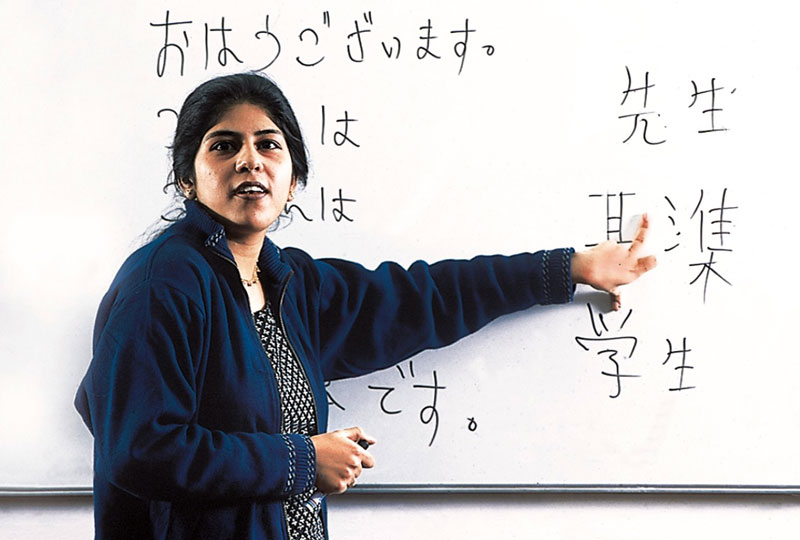 おはうございます。
は
んは
です。
先生
準
学生